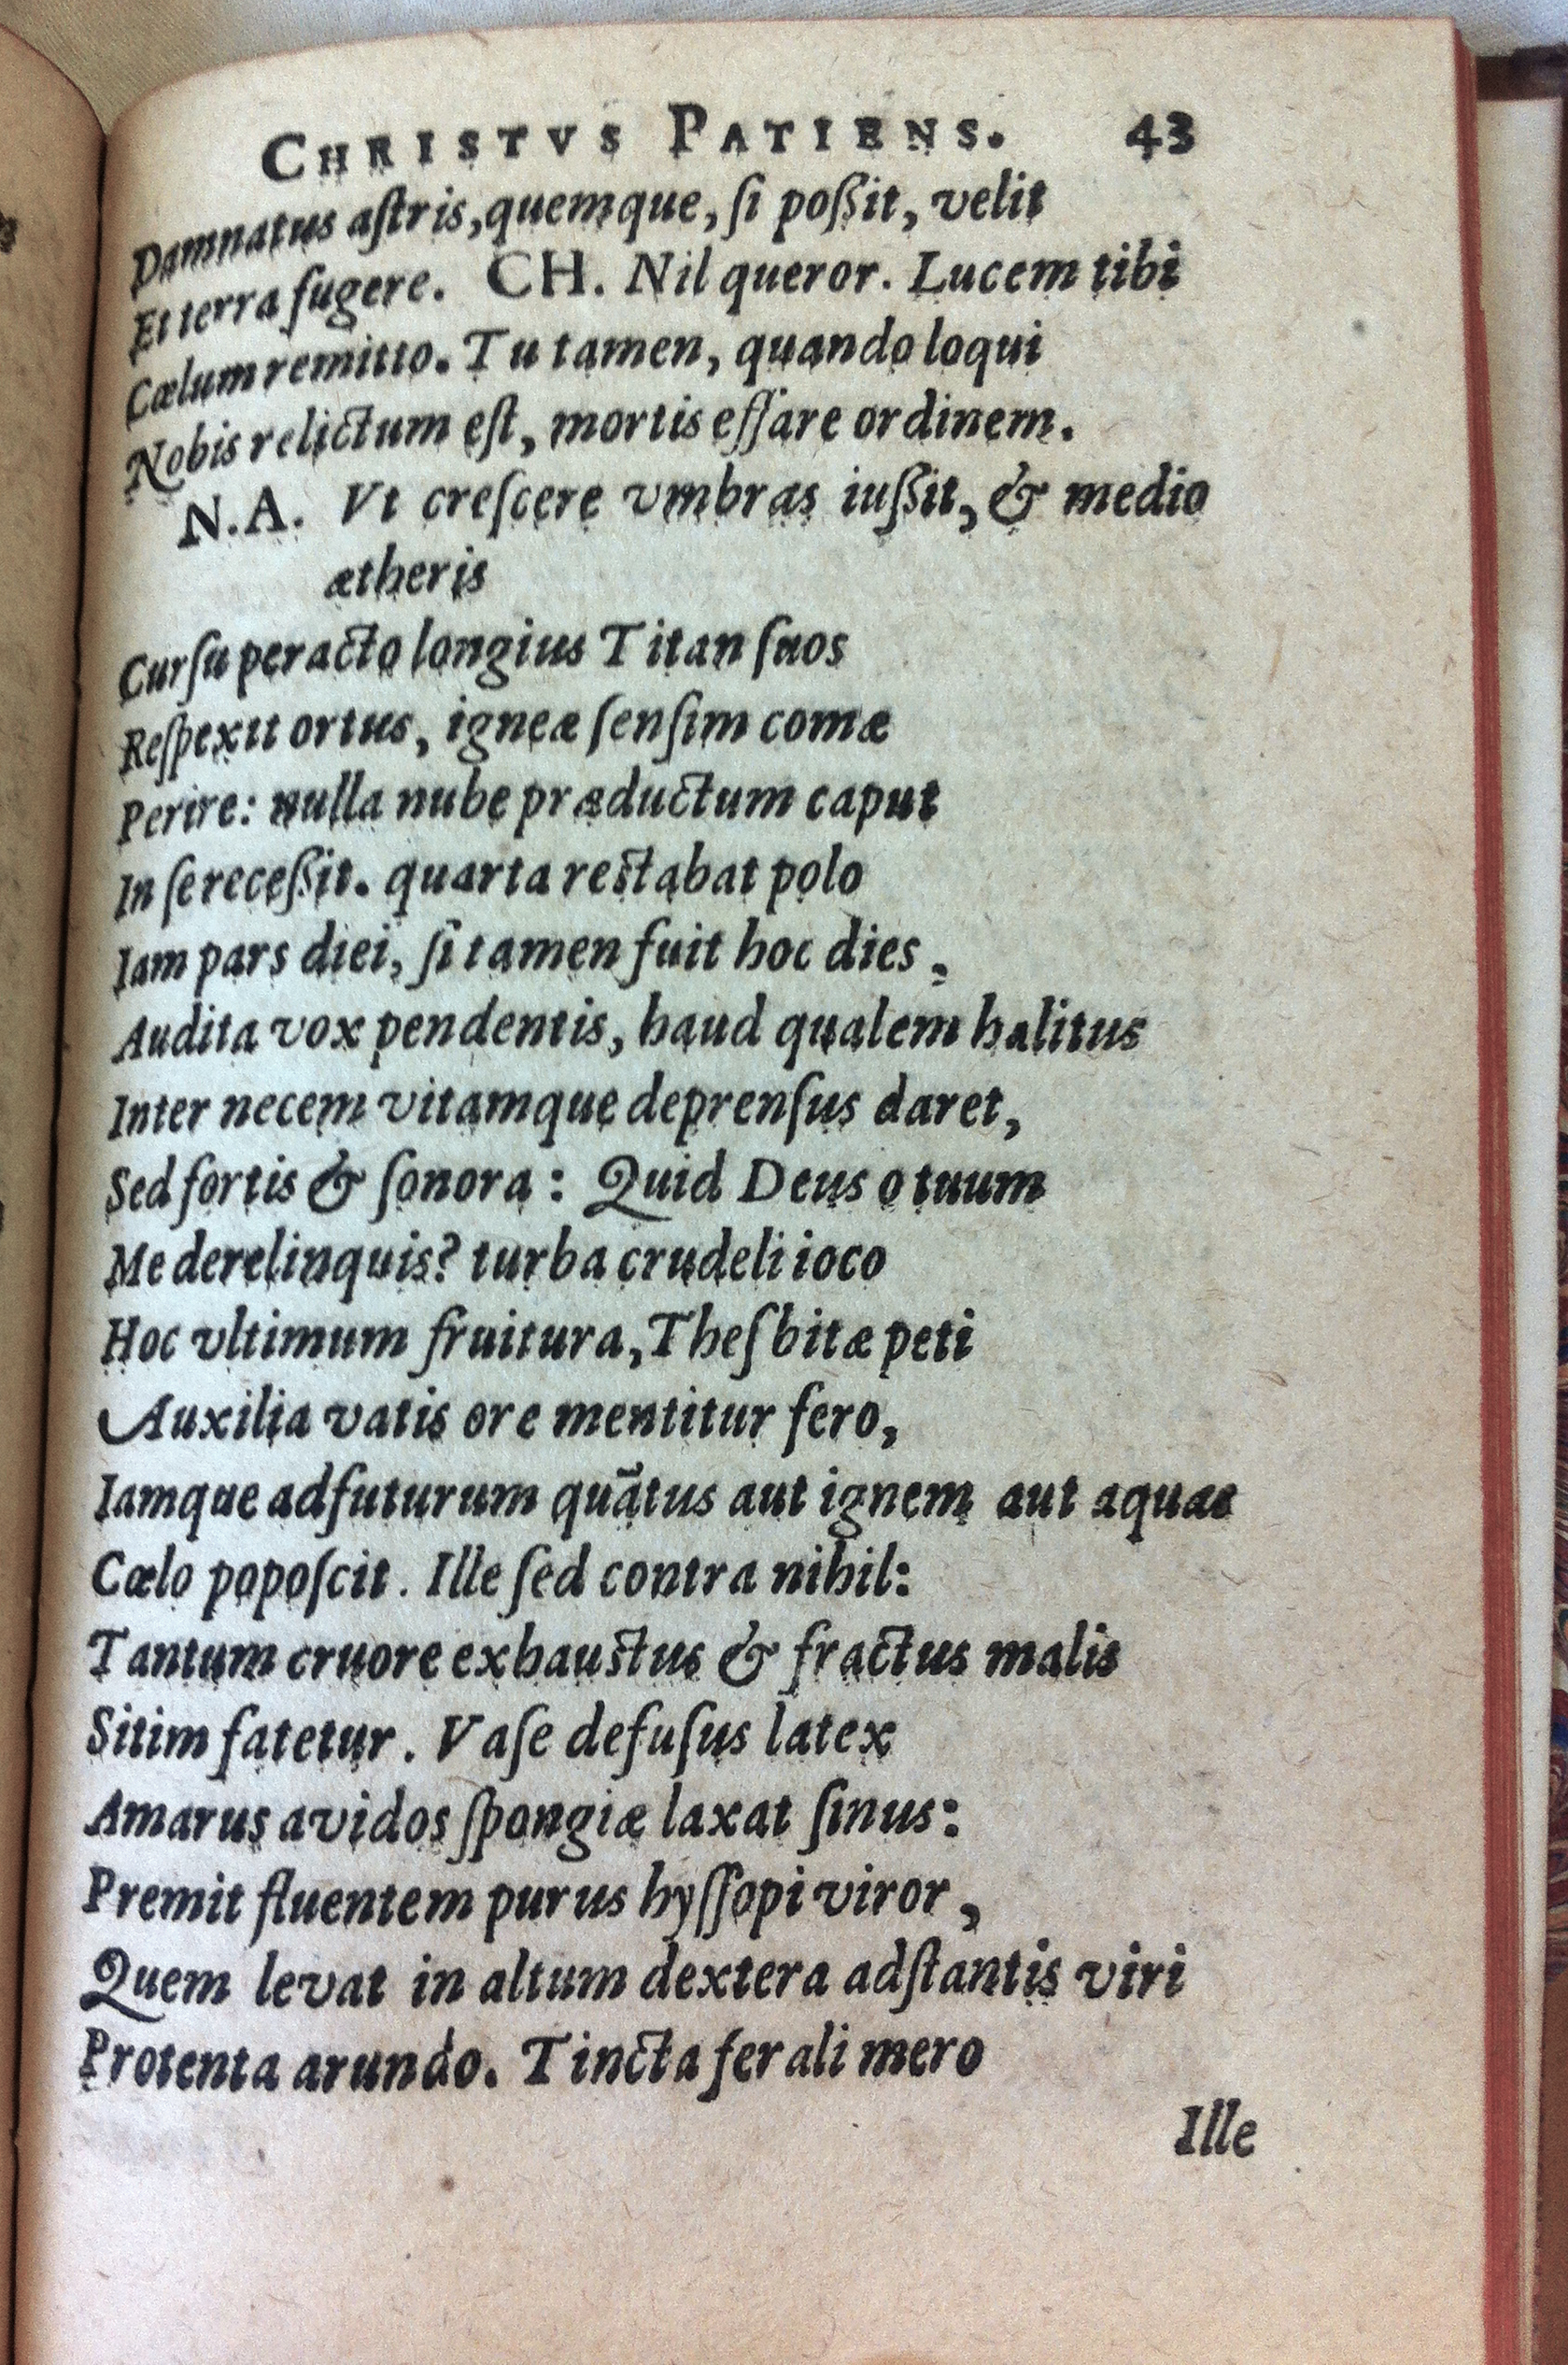 CHRISTVS PATIENS. 43
Damnatus aſtris, quemque, ſi poßit, velit
Et terra fugere. CH. Nil queror. Lucem tibi
Cælum remitto. Tu tamen, quando loqui
Nobis relictum eſt, mortis effare ordinem.
N.A. Vt creſcere vmbras iußit, & medio
ætheris
Curſu peracto longius Titan ſuos
Reſpexit ortus, igneæ ſenſim comæ
Perire: nulla nube præductum caput
In ſe receßit. quarta reſtabat polo
Iam pars diei, ſi tamen fuit hoc dies,
Audita vox pendentis, haud qualem halitus
Inter necem vitamque deprenſus daret,
Sed fortis & ſonora: Quid Deus o tuum
Me derelinquis? turba crudeli ioco
Hoc vltimum fruitura, Theſbitæ peti
Auxilia vatis ore mentitur fero,
Iamque adfuturum quãtus aut ignem aut aquas
Cœlo popoſcit. Ille ſed contra nihil:
Tantum cruore exhauſtus & fractus malis
Sitim fatetur. Vaſe defuſus latex
Amarus avidos ſpongiæ laxat ſinus:
Premit fluentem purus hyſſopi viror,
Quem levat in altum dextera adſtantis viri
Protenta arundo. Tincta ferali mero
Ille